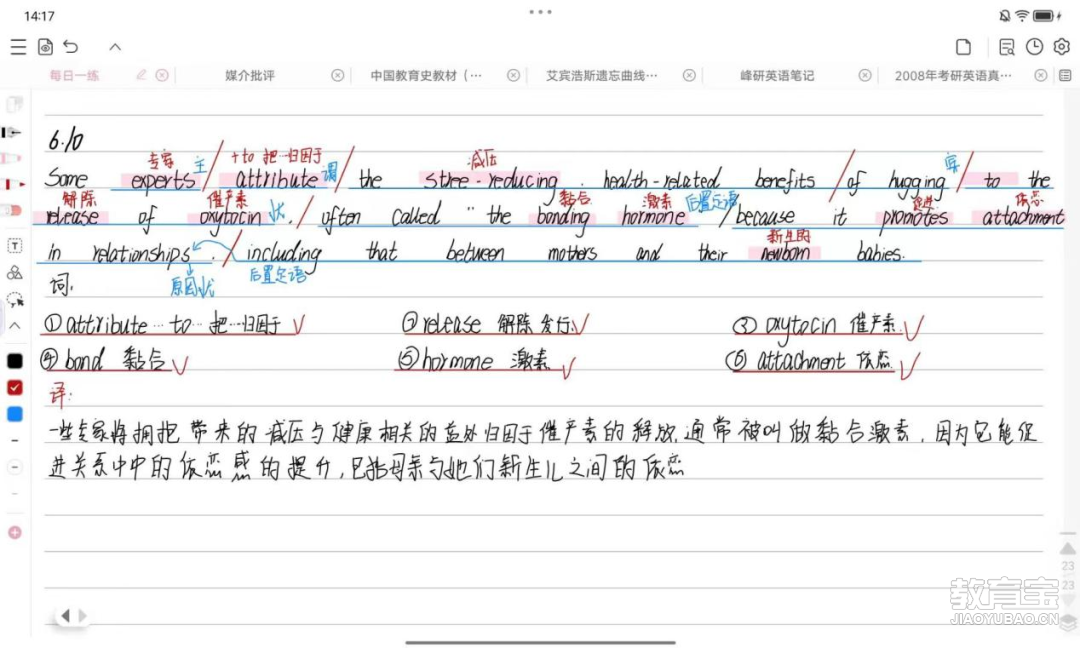 14:17
每日一练 媒介批评 中国教育史教材（… 艾宾浩斯遗忘曲线… 峰研英语笔记 2008年考研英语真…
6.10
专家 主 +to 把…归因于 谓 减压 宾
Some experts / attribute / the stree-reducing . health-related benefits / of hugging / to the
解除 催产素 状 黏合 激素 后置定语 促进 依恋
release of oxytocin , / often called " the bonding hormone / because it promotes attachment
新生的
in relationships , / including that between mothers and their newborn babies.
原因状 后置定语
词.
①attribute…to… 把…归因于 ②release 解除 发行 ③ oxytocin 催产素
④bond 黏合 ⑤hormone 激素 ⑥ attachment 依恋
译:
一些专家将拥抱带来的减压与健康相关的益处归因于催产素的释放,通常被叫做黏合激素,因为它能促
进关系中中的依恋感的提升,包括母亲与她们新生儿之间的依恋
23
23
教育宝
JIAOYUBAO.CN